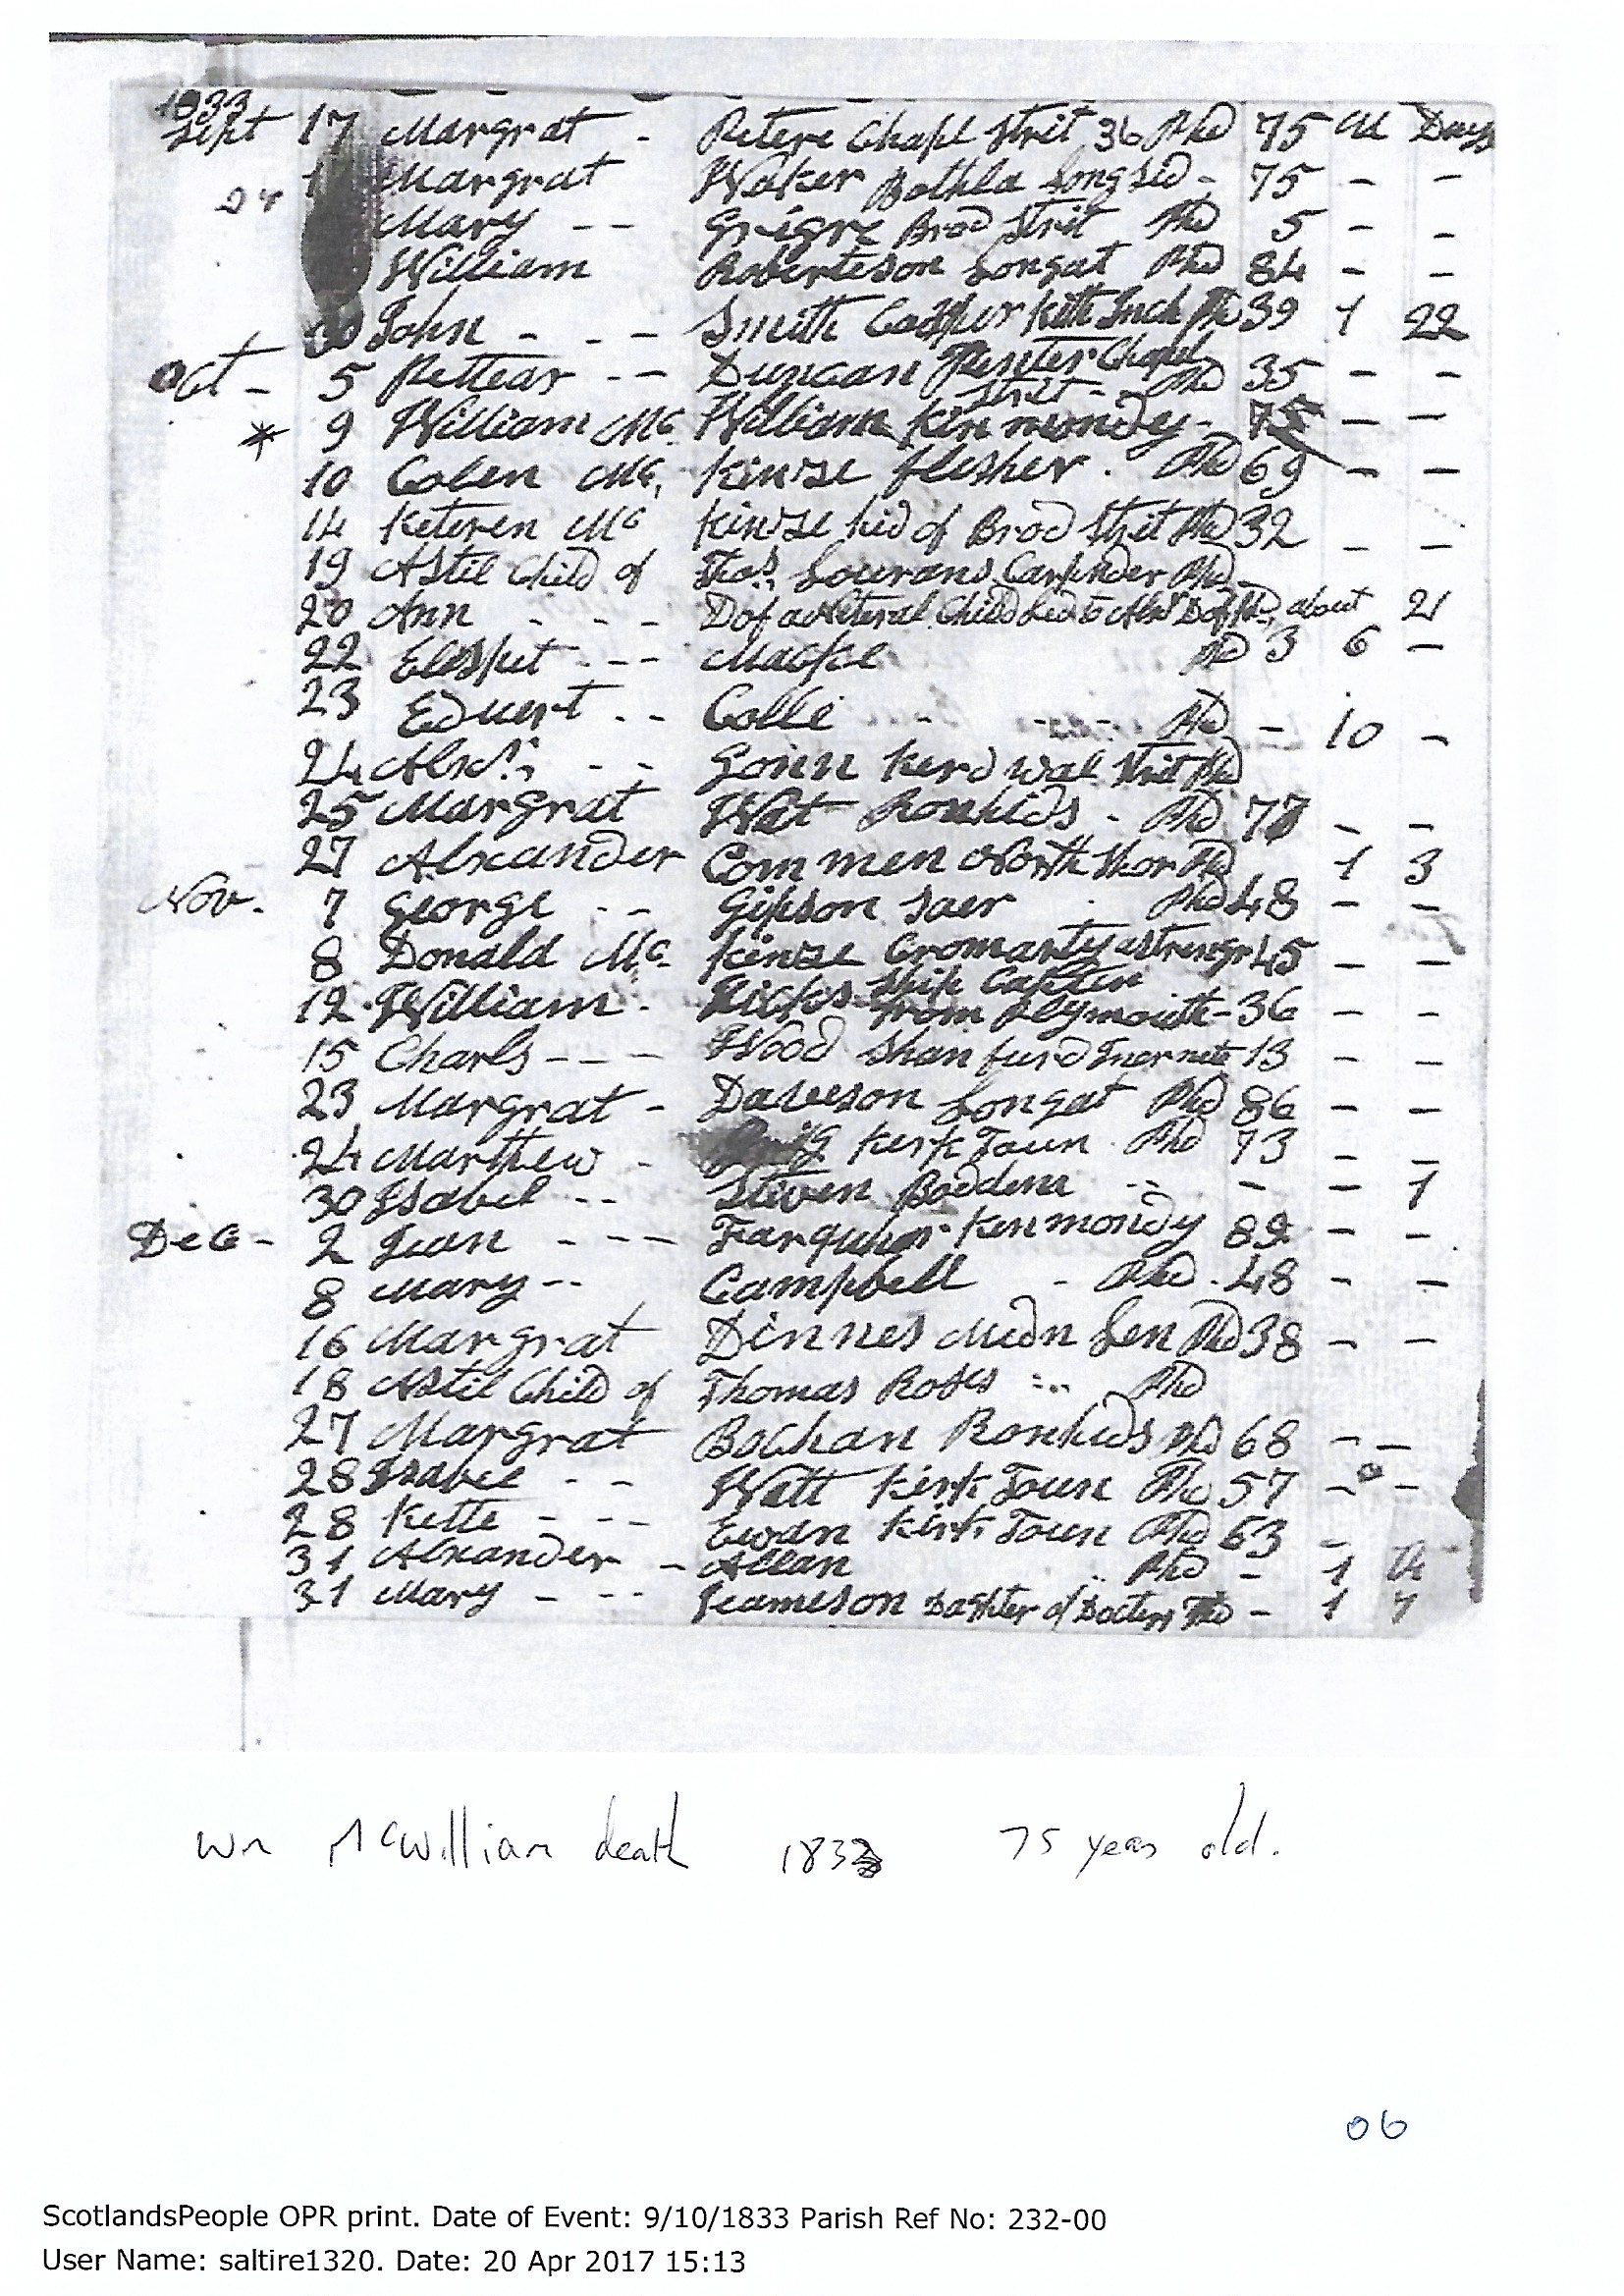 1833
Sept 17 Margrat - Petere Chapl Strit 36 Phd 75 M Days
Margrat Waker Bothla Longsid - 75 - -
Mary - - Grigre Brod Strit Phd 5 - -
William Robertson Longat Phd 84 - -
30 John - - - Smith Kith Inch Phd 39 1 22
Oct - 5 Pettear - - Duncan Chapel Strit - Phd 35 - -
* 9 William Mc. William Kinmondy - 75 - -
10 Colen Mc. Kinze flesher . Phd 69 - -
14 Keteren Mc Kinze hid of Brod Strit Phd 32 - -
19 A Stil Child of Thos. Lourans Carpinder Phd
20 Ann - - - about 21
22 Elespet - - - Mackie Phd 3 6 -
23 Eduert - - Colle - - - Phd - 10 -
24 Alxr. - - Gonn Kerd wal Strit Phd
25 Margrat Wat Ronhids - Phd 77 - -
27 Alxander Commen North Shor Phd 1 3
Nov. 7 George - - Gipson saer Phd 48 - -
8 Donald Mc. Kinze Cromarty a strengr 45 - -
12 William - Hicks Ship Capten from Plymouth - 36 - -
15 Charls - - - Wood 13 - -
23 Margrat - Daveson Longat Phd 86 - -
24 Marthew - Kerk Toun Phd 73 - -
30 Isabel - - Stiven Boddem - - - - 1
Dec - 2 Jean - - - Farquhar Kenmondy 89 - -
8 Mary - - Campbell - Phd . 48 - -
16 Margrat Dinnes Medn Len Phd 38 - -
18 A Stil Child of Thomas Robes Phd
27 Margrat Bochan Ronhids Phd 68 - -
28 Isabel - - Watt Kirk Toun Phd 57 - -
28 Kette - - - Ewan Kirk Toun Phd 63 -
31 Alxander - Allan Phd - 1 14
31 Mary - - - Jeameson Daghter of Docters Phd - 1 7
Wm McWilliam death 1833 75 years old.
06
ScotlandsPeople OPR print. Date of Event: 9/10/1833 Parish Ref No: 232-00
User Name: saltire1320. Date: 20 Apr 2017 15:13